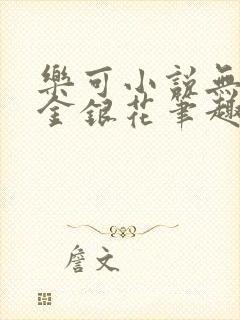 樂可小說無
金銀花筆趣
詹文